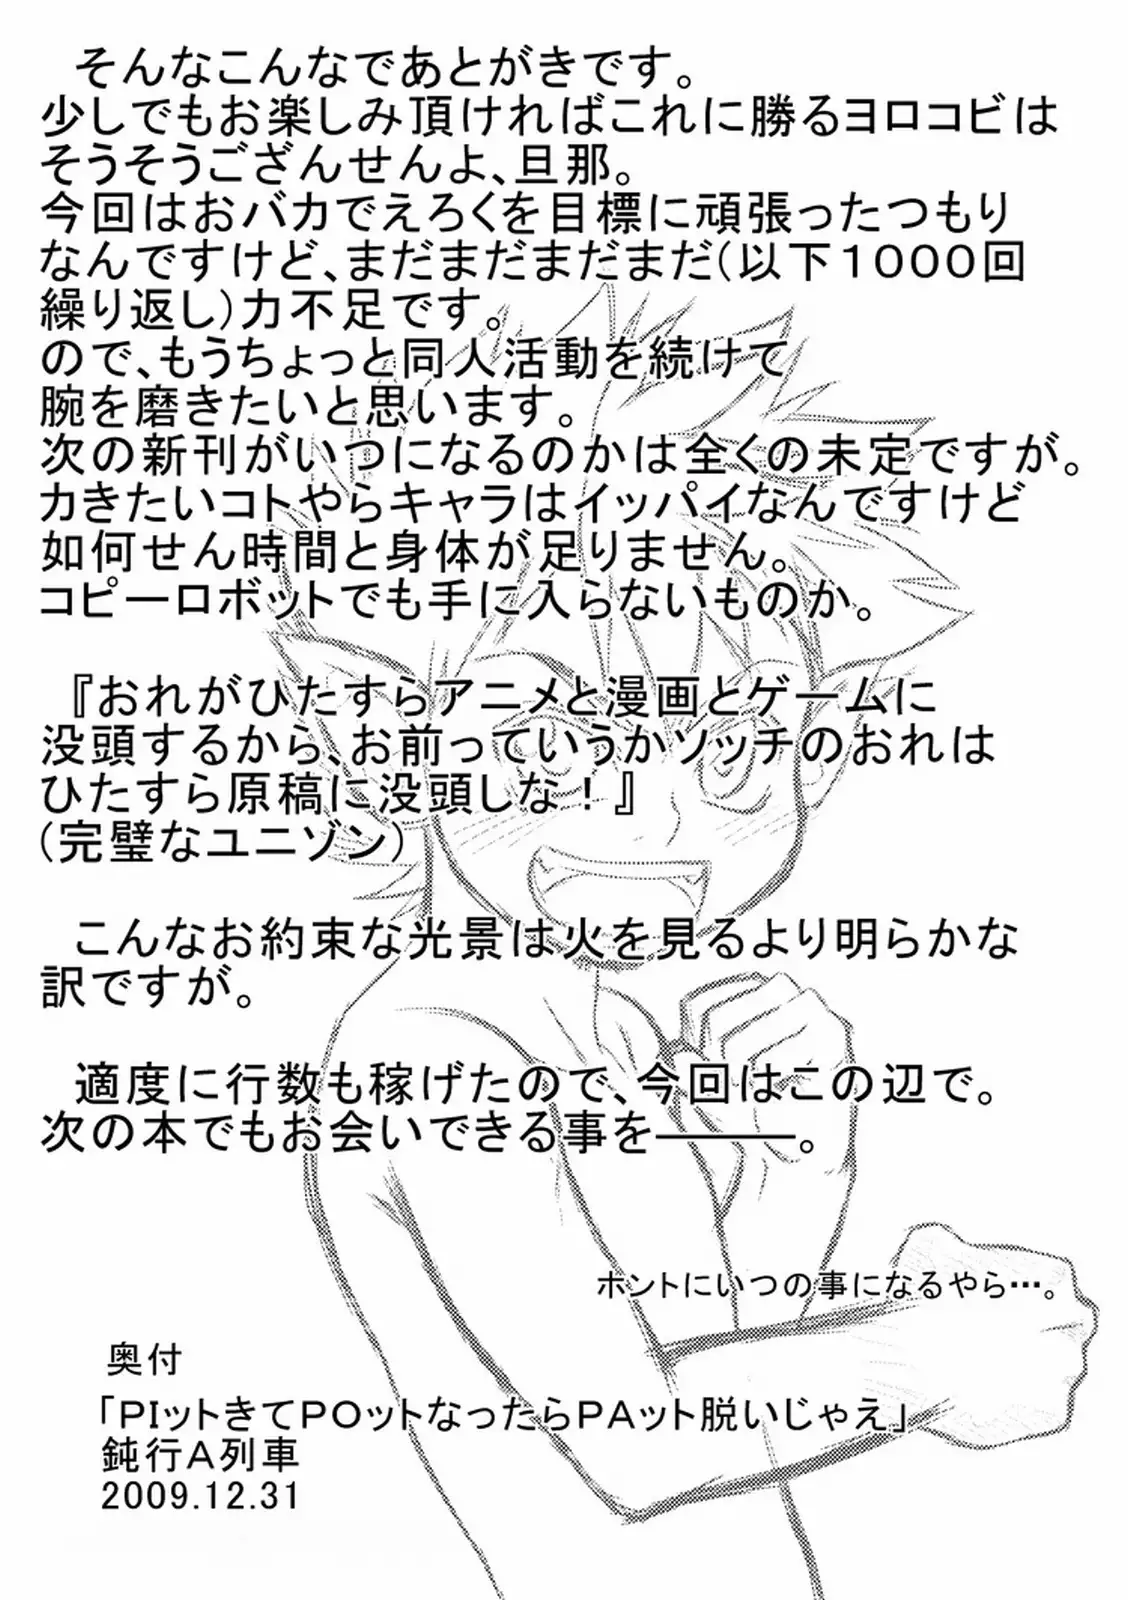 そんなこんなであとがきです。
少しでもお楽しみ頂ければこれに勝るヨロコビは
そうそうござんせんよ、旦那。
今回はおバカでえろくを目標に頑張ったつもり
なんですけど、まだまだまだまだ(以下１０００回
繰り返し)力不足です。
ので、もうちょっと同人活動を続けて
腕を磨きたいと思います。
次の新刊がいつになるのかは全くの未定ですが。
力きたいコトやらキャラはイッパイなんですけど
如何せん時間と身体が足りません。
コピーロボットでも手に入らないものか。
『おれがひたすらアニメと漫画とゲームに
没頭するから、お前っていうかソッチのおれは
ひたすら原稿に没頭しな！』
(完璧なユニゾン)
こんなお約束な光景は火を見るより明らかな
訳ですが。
適度に行数も稼げたので、今回はこの辺で。
次の本でもお会いできる事を―――。
ホントにいつの事になるやら…。
奥付
「ＰＩットきてＰＯットなったらＰＡット脱いじゃえ」
鈍行Ａ列車
2009.12.31